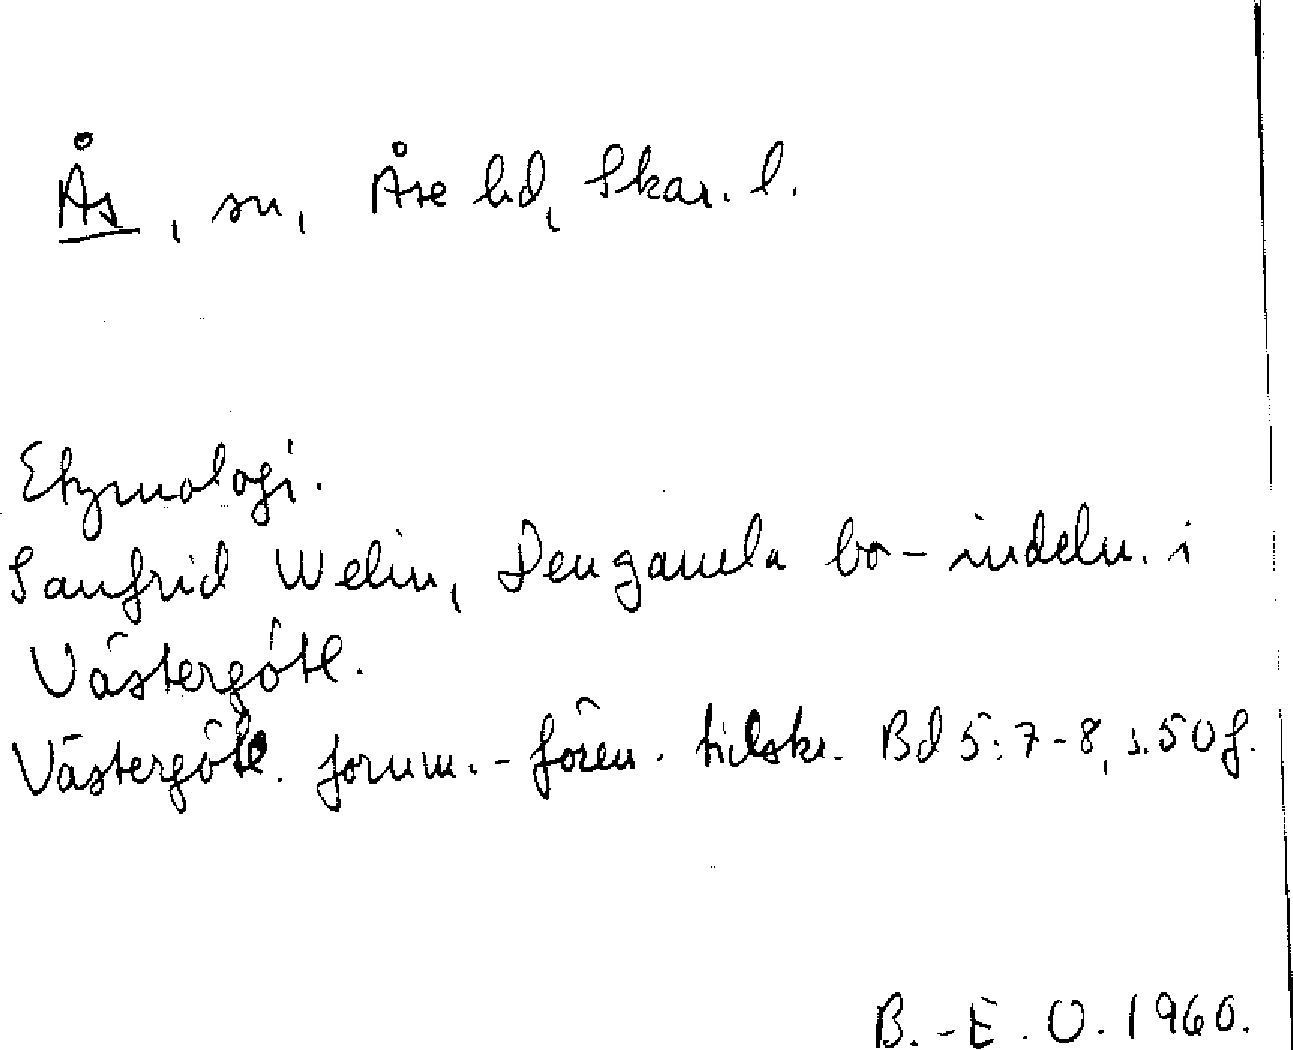 Ås, sn, Åse hd, Skar. l.
Etymologi.
Sanfrid Welin, Den gamla bo-indeln. i
Västergötl.
Västergötl. fornm.-fören. tidskr. Bd 5:7-8, s. 50 f.
B.-E. O. 1960.